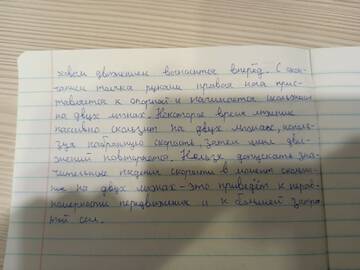 ховым движением выносится вперёд. С окон-
чанием толчка руками правая нога прис-
тавляется к опорной и начинается скольжение
на двух лыжах. Некоторое время лыжник
пассивно скользит на двух лыжах, исполь-
зуя набранную скорость, затем цикл дви-
жений повторяется. Нельзя допускать зна-
чительные падения скорости в момент скольже-
ния на двух лыжах - это приведёт к нерав-
номерности передвижения и к большей затра-
те сил.